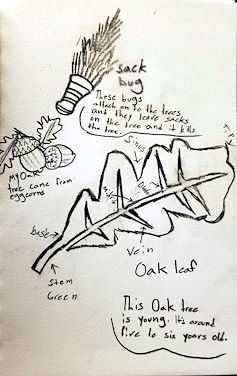 sack
bug
These bugs
attach on to the trees
and they leave sacks
on the tree and it kills
the tree.
My Oak
tree came from
eggcorns
Sinus
Tip
Vein
Oak leaf
Stem
Green
This Oak tree
is young. It's around
five to six years old.